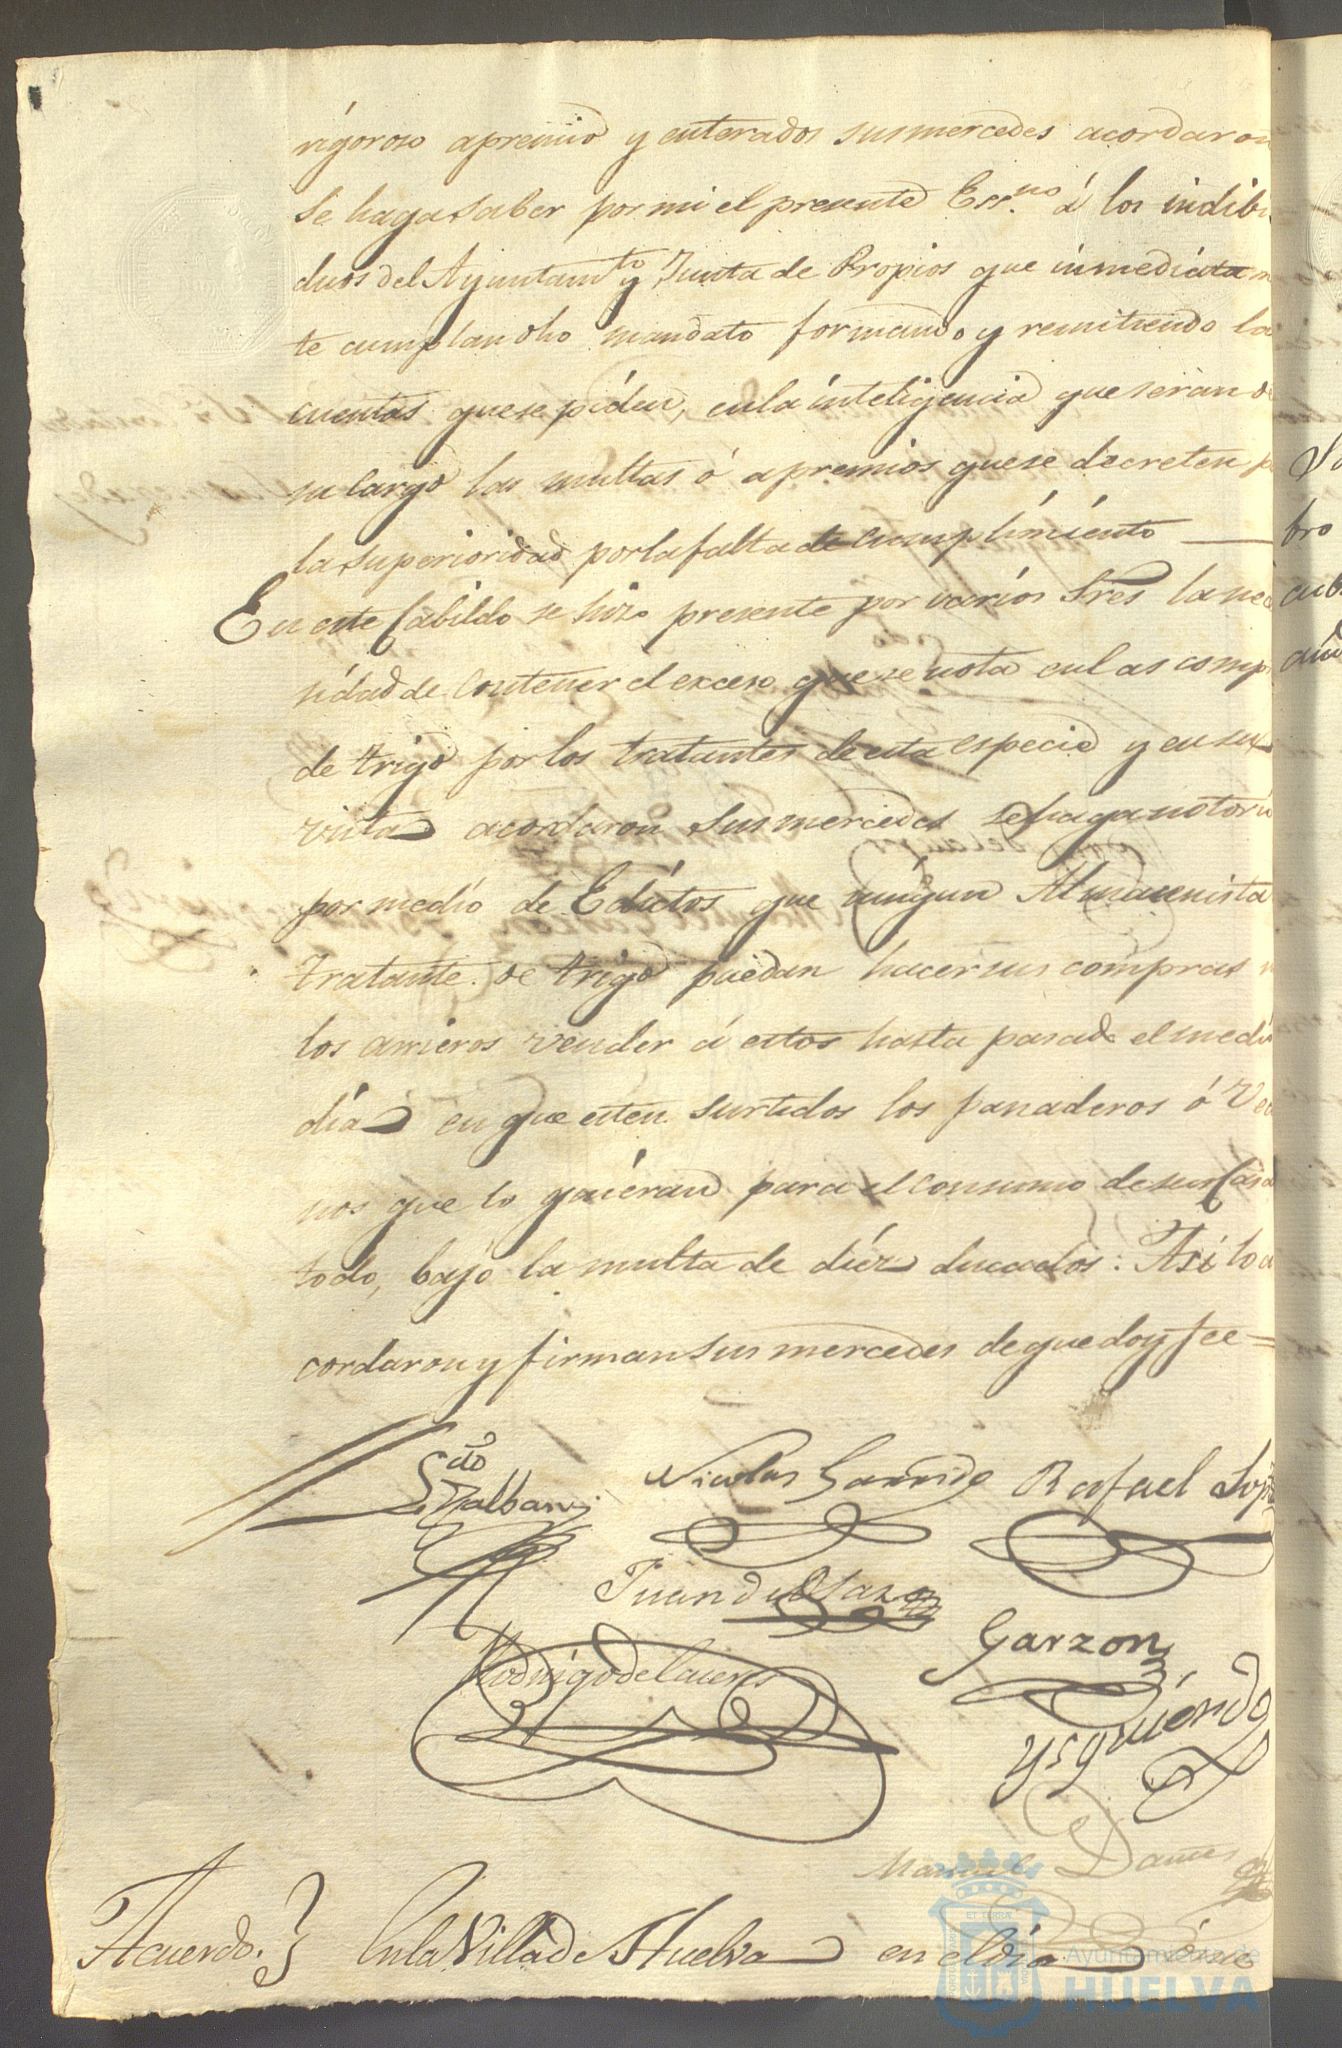 rigoroso apremio y enterados sus mercedes acordaron
se haga saber por mi el presente Ess.no á los indibi
duos del Ayuntam.to y Junta de Propios que inmediatam
te cumplan dho mandato formando y remitiendo la
cuentas que se piden, en la inteligencia que seran d
su cargo las multas ó apremios que se decreten p
la superioridad por la falta de cumplimiento
En este Cabildo se hizo presente por varios Sres la nece
sidad de contener el exceso que se nota en las comp
de trigo por los tratantes de esta especie y en su
vista acordaron sus mercedes se haga notorio
por medio de Edictos que ningun Almacenista
tratante de trigo puedan hacer sus compras n
los arrieros vender á estos hasta pasado el medio
dia en que esten surtidos los panaderos ó Veci
nos que lo quieran para el consumo de sus Casa
todo, bajo la multa de diez ducados: Asi lo a
cordaron y firman sus mercedes de que doy fee =
Nicolas Garrido Rafael Lop
Juan de
Garzon
Rodrigo de Caceres
Ysquierdo
Manuel
Acuerdo. En la Villa de Huelva en el dia
ET TERRÆ
Ayuntamiento de
HUELVA
bro
cub